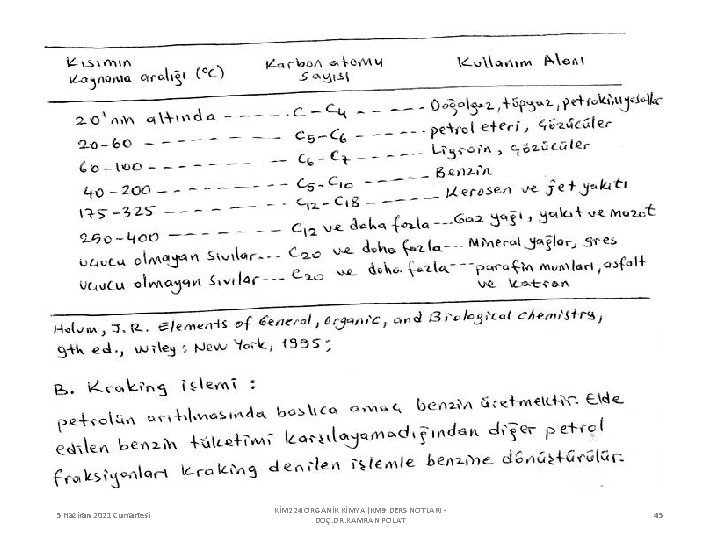 Kısımın Karbon atomu Kullanım Alanı
Kaynama aralığı (°C) sayısı
20'nin altında ------- C-C4 ----- Doğalgaz, tüpgaz, petrokimyasallar
20-60 ---------- C5-C6 ------ petrol eteri, çözücüler
60-100 ---------- C6-C7 ------ Ligroin, çözücüler
40-200 ---------- C5-C10 ------ Benzin
175-325 --------- C12-C18 ----- Kerosen ve jet yakıtı
250-400 --------- C12 ve daha fazla --- Gaz yağı, yakıt ve mazot
uçucu olmayan sıvılar --- C20 ve daha fazla --- Mineral yağlar, gres
uçucu olmayan sıvılar --- C20 ve daha fazla --- parafin mumları, asfalt
ve katran
Holum, J.R. Elements of General, Organic, and Biological Chemistry,
9th ed., Wiley: New York, 1995;
B. Kraking işlemi :
petrolün arıtılmasında başlıca amaç benzin üretmektir. Elde
edilen benzin tüketimi karşılayamadığından diğer petrol
fraksiyonları kraking denilen işlemle benzine dönüştürülür.
5 Haziran 2021 Cumartesi
KİM224 ORGANİK KİMYA (KM9 DERS NOTLARI -
DOÇ.DR.KAMRAN POLAT
45